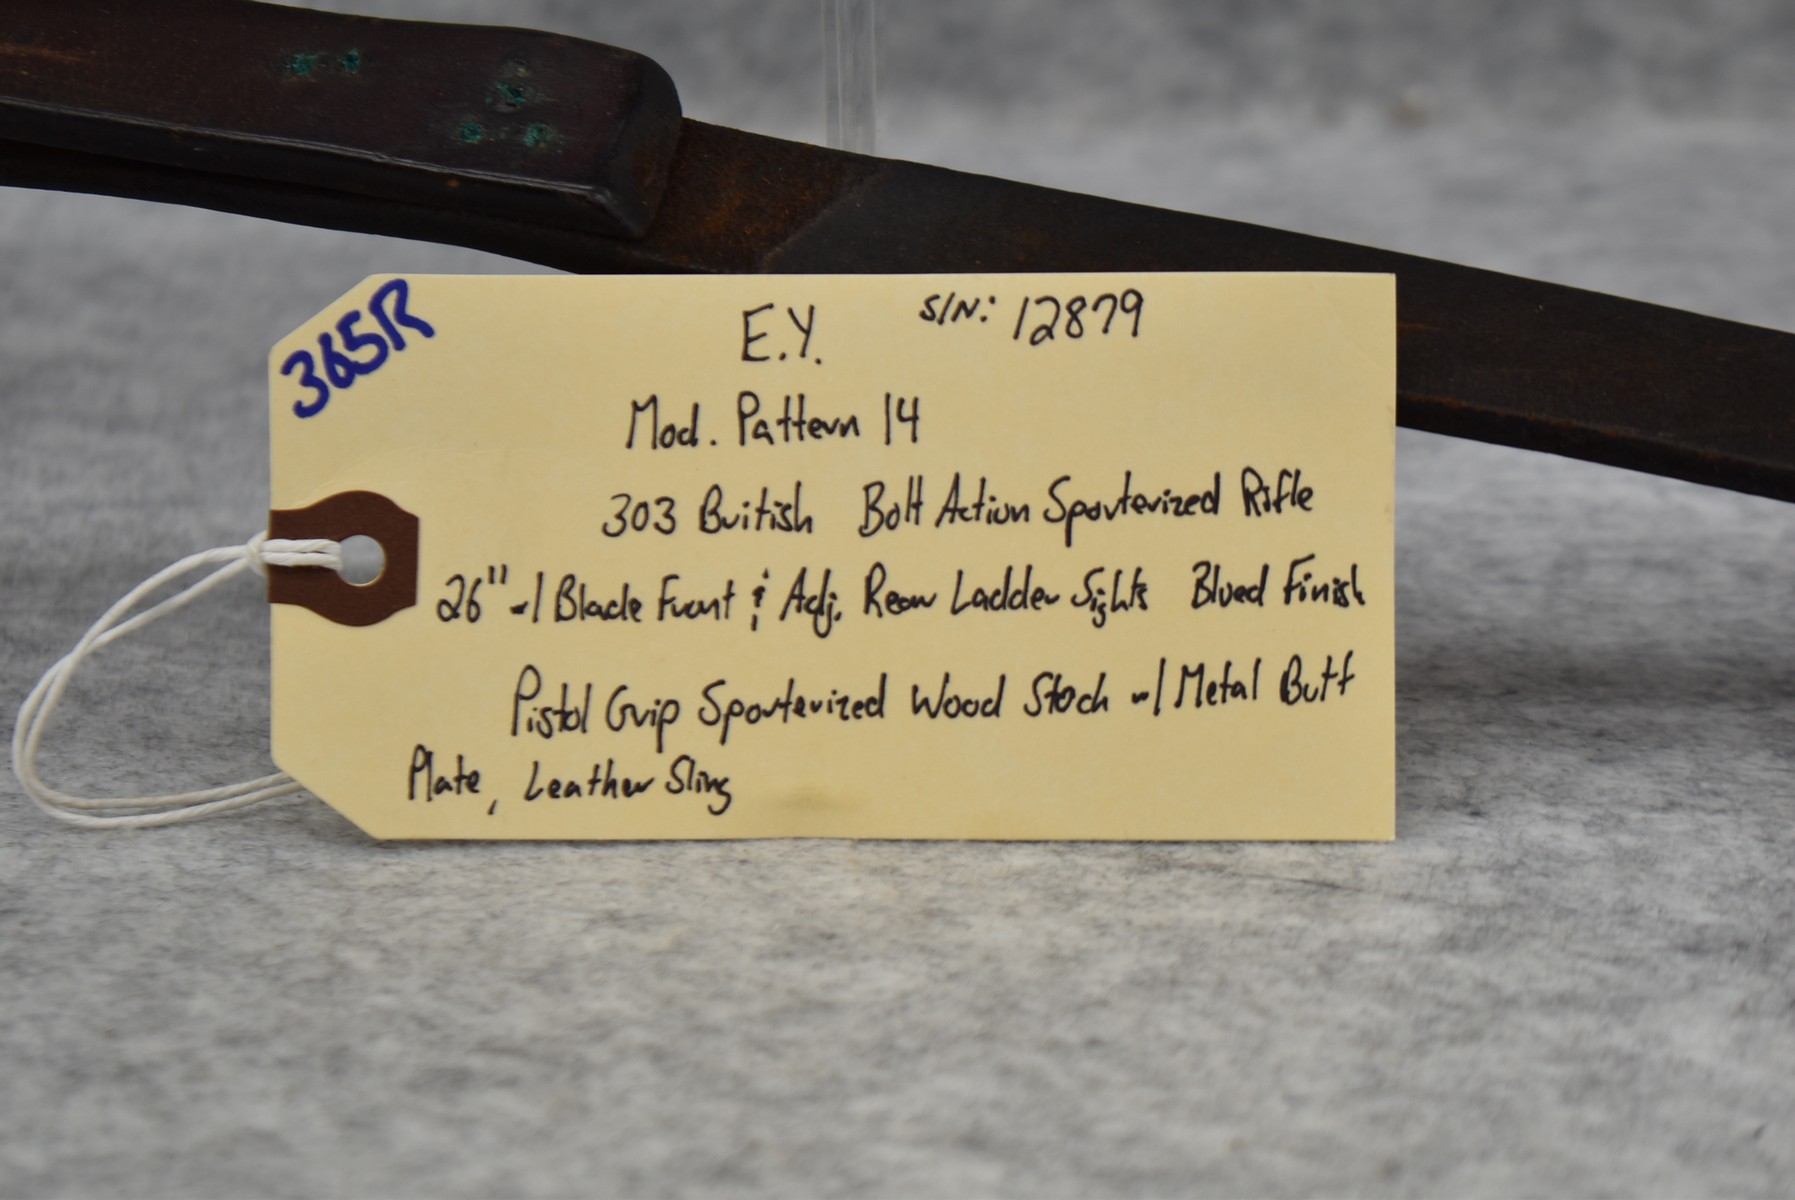 365R
E.Y. S/N: 12879
Mod. Pattern 14
303 British Bolt Action Sporterized Rifle
26" w/ Blade Front & Adj. Rear Ladder Sights Blued Finish
Pistol Grip Sporterized Wood Stock w/ Metal Butt
Plate, Leather Sling